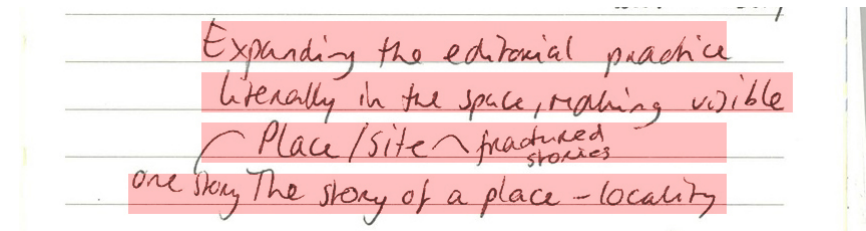 Expanding the editorial practice
literally in the space, making visible
Place/site fractured
stories
one story The story of a place - locality